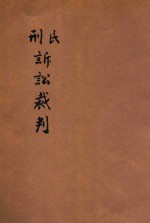 民刑訴訟裁判